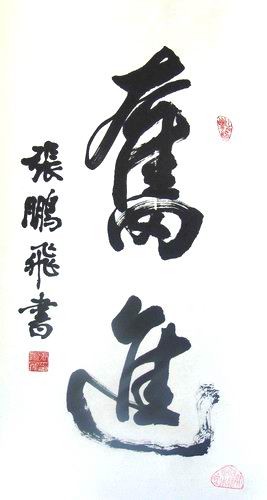 奮進
張鵬飛書